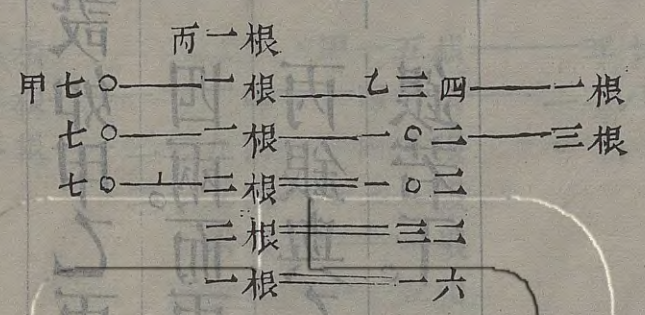 丙一根
甲七〇——一根——乙三四——一根
七〇——一根——一〇二——三根
七〇⊥二根══一〇二
二根══三二
一根══一六